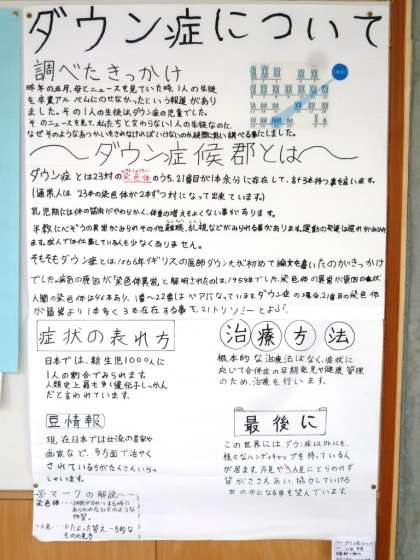 ダウン症について
調べたきっかけ
昨年の五月、母とニュースを見ていた時、1人の生徒
を卒業アルバムにのせなかったという報道があり
ました。その1人の生徒はダウン症の児童でした。
そのニュースを見て、私たちと変わらない1人の生徒なのに、
なぜそのようなあつかいをされなければいけないのか疑問に思い調べる事にしました。
〜ダウン症候群とは〜
ダウン症とは23対の染色体のうち、21番目が1本余分に存在して、計3本持つ事を言います。
(通常人は23本の染色体が2本ずつ対になって出来ています。)
乳児期には体の筋肉がやわらかく、体重の増えもよくない事があります。
半数に心ぞうの異常がみられその他難聴、乱視などがみられる事があります。運動の発達は遅れがみられ
ます。成人では仕事している人も少なくありません。
そもそもダウン症とは、1866年イギリスの医師ダウン氏が初めて論文を書いたのがきっかけ
でした。病気の原因が「染色体異常」と解明されたのは、1959年でした。染色体の異常が原因の症状
人間の染色体は46本あり、1番〜22番はペアになっています。ダウン症の場合、21番目の染色体
が通常より1本多く3本存在する事で、21トリソミーとよぶ。
症状の表れ方
日本では、新生児1000人に
1人の割合でみられます。
人類史上最も多く遺伝子しっかん
だと言われています。
治療方法
根本的な治療法はなく、症状に
応じて合併症の早期発見や健康管理
のため、治療を行います。
豆情報
現、在日本では女流の書家や
画家など、多方面で活やく
されている方がたくさんいらっ
しゃいます。
最後に
この世界には、ダウン症以外にも、
様々なハンディキャップを持っている人
が居ます。
皆がささえあい、協力していける
世の中になる事を望んでいます。
※マークの解説〜
染色体